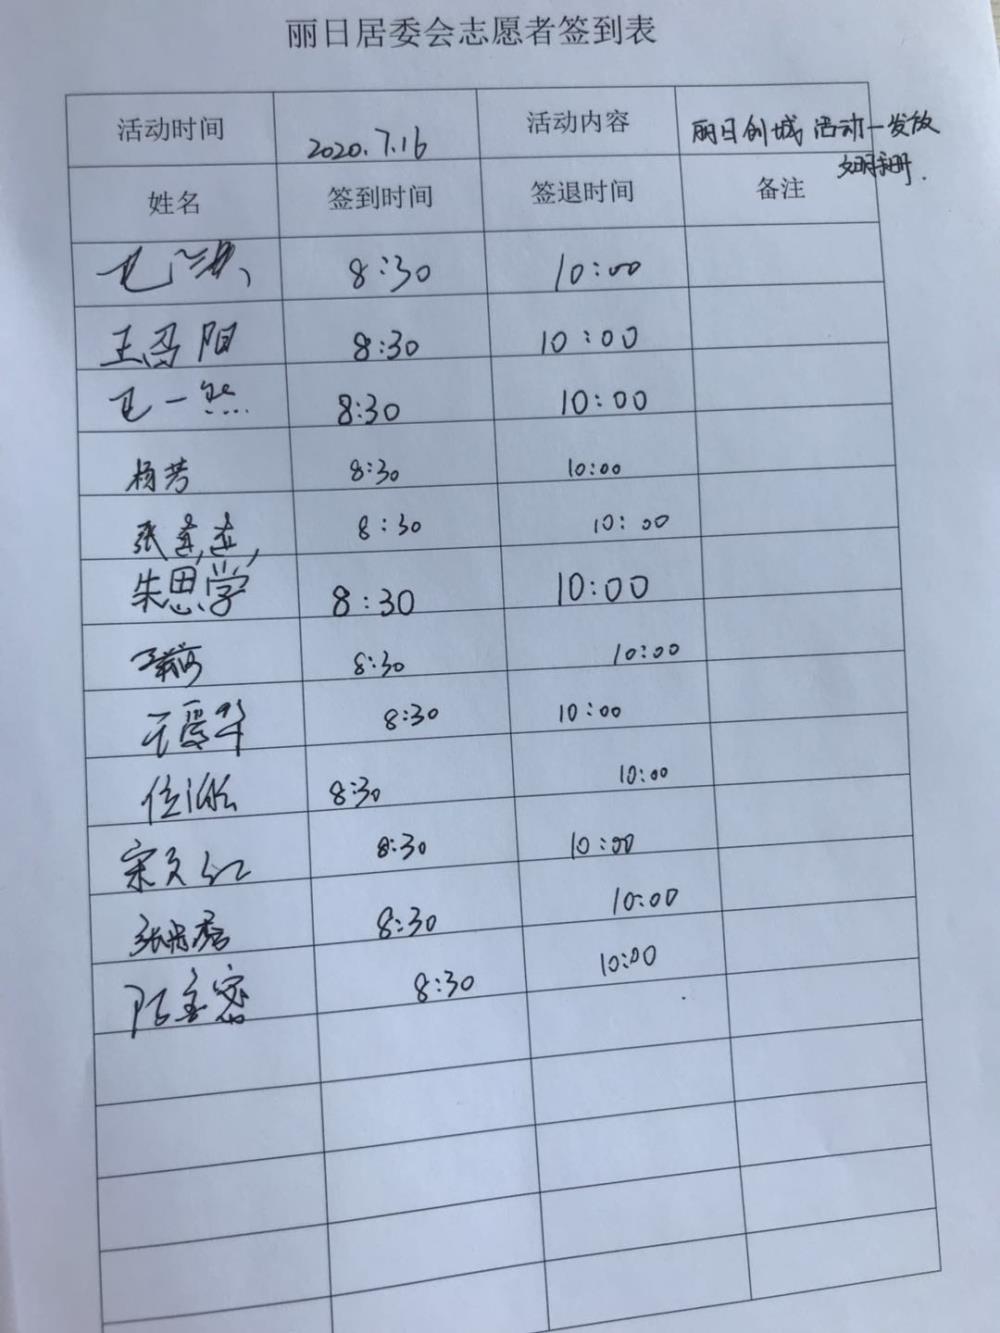 丽日居委会志愿者签到表
活动时间 2020.7.16 活动内容 丽日创城活动—发放
文明手册.
姓名 签到时间 签退时间 备注
8:30 10:00
王 阳 8:30 10:00
一然 8:30 10:00
杨芳 8:30 10:00
张莲莲 8:30 10:00
朱思学 8:30 10:00
8:30 10:00
王爱华 8:30 10:00
8:30 10:00
宋文红 8:30 10:00
张 秀 8:30 10:00
陈 8:30 10:00